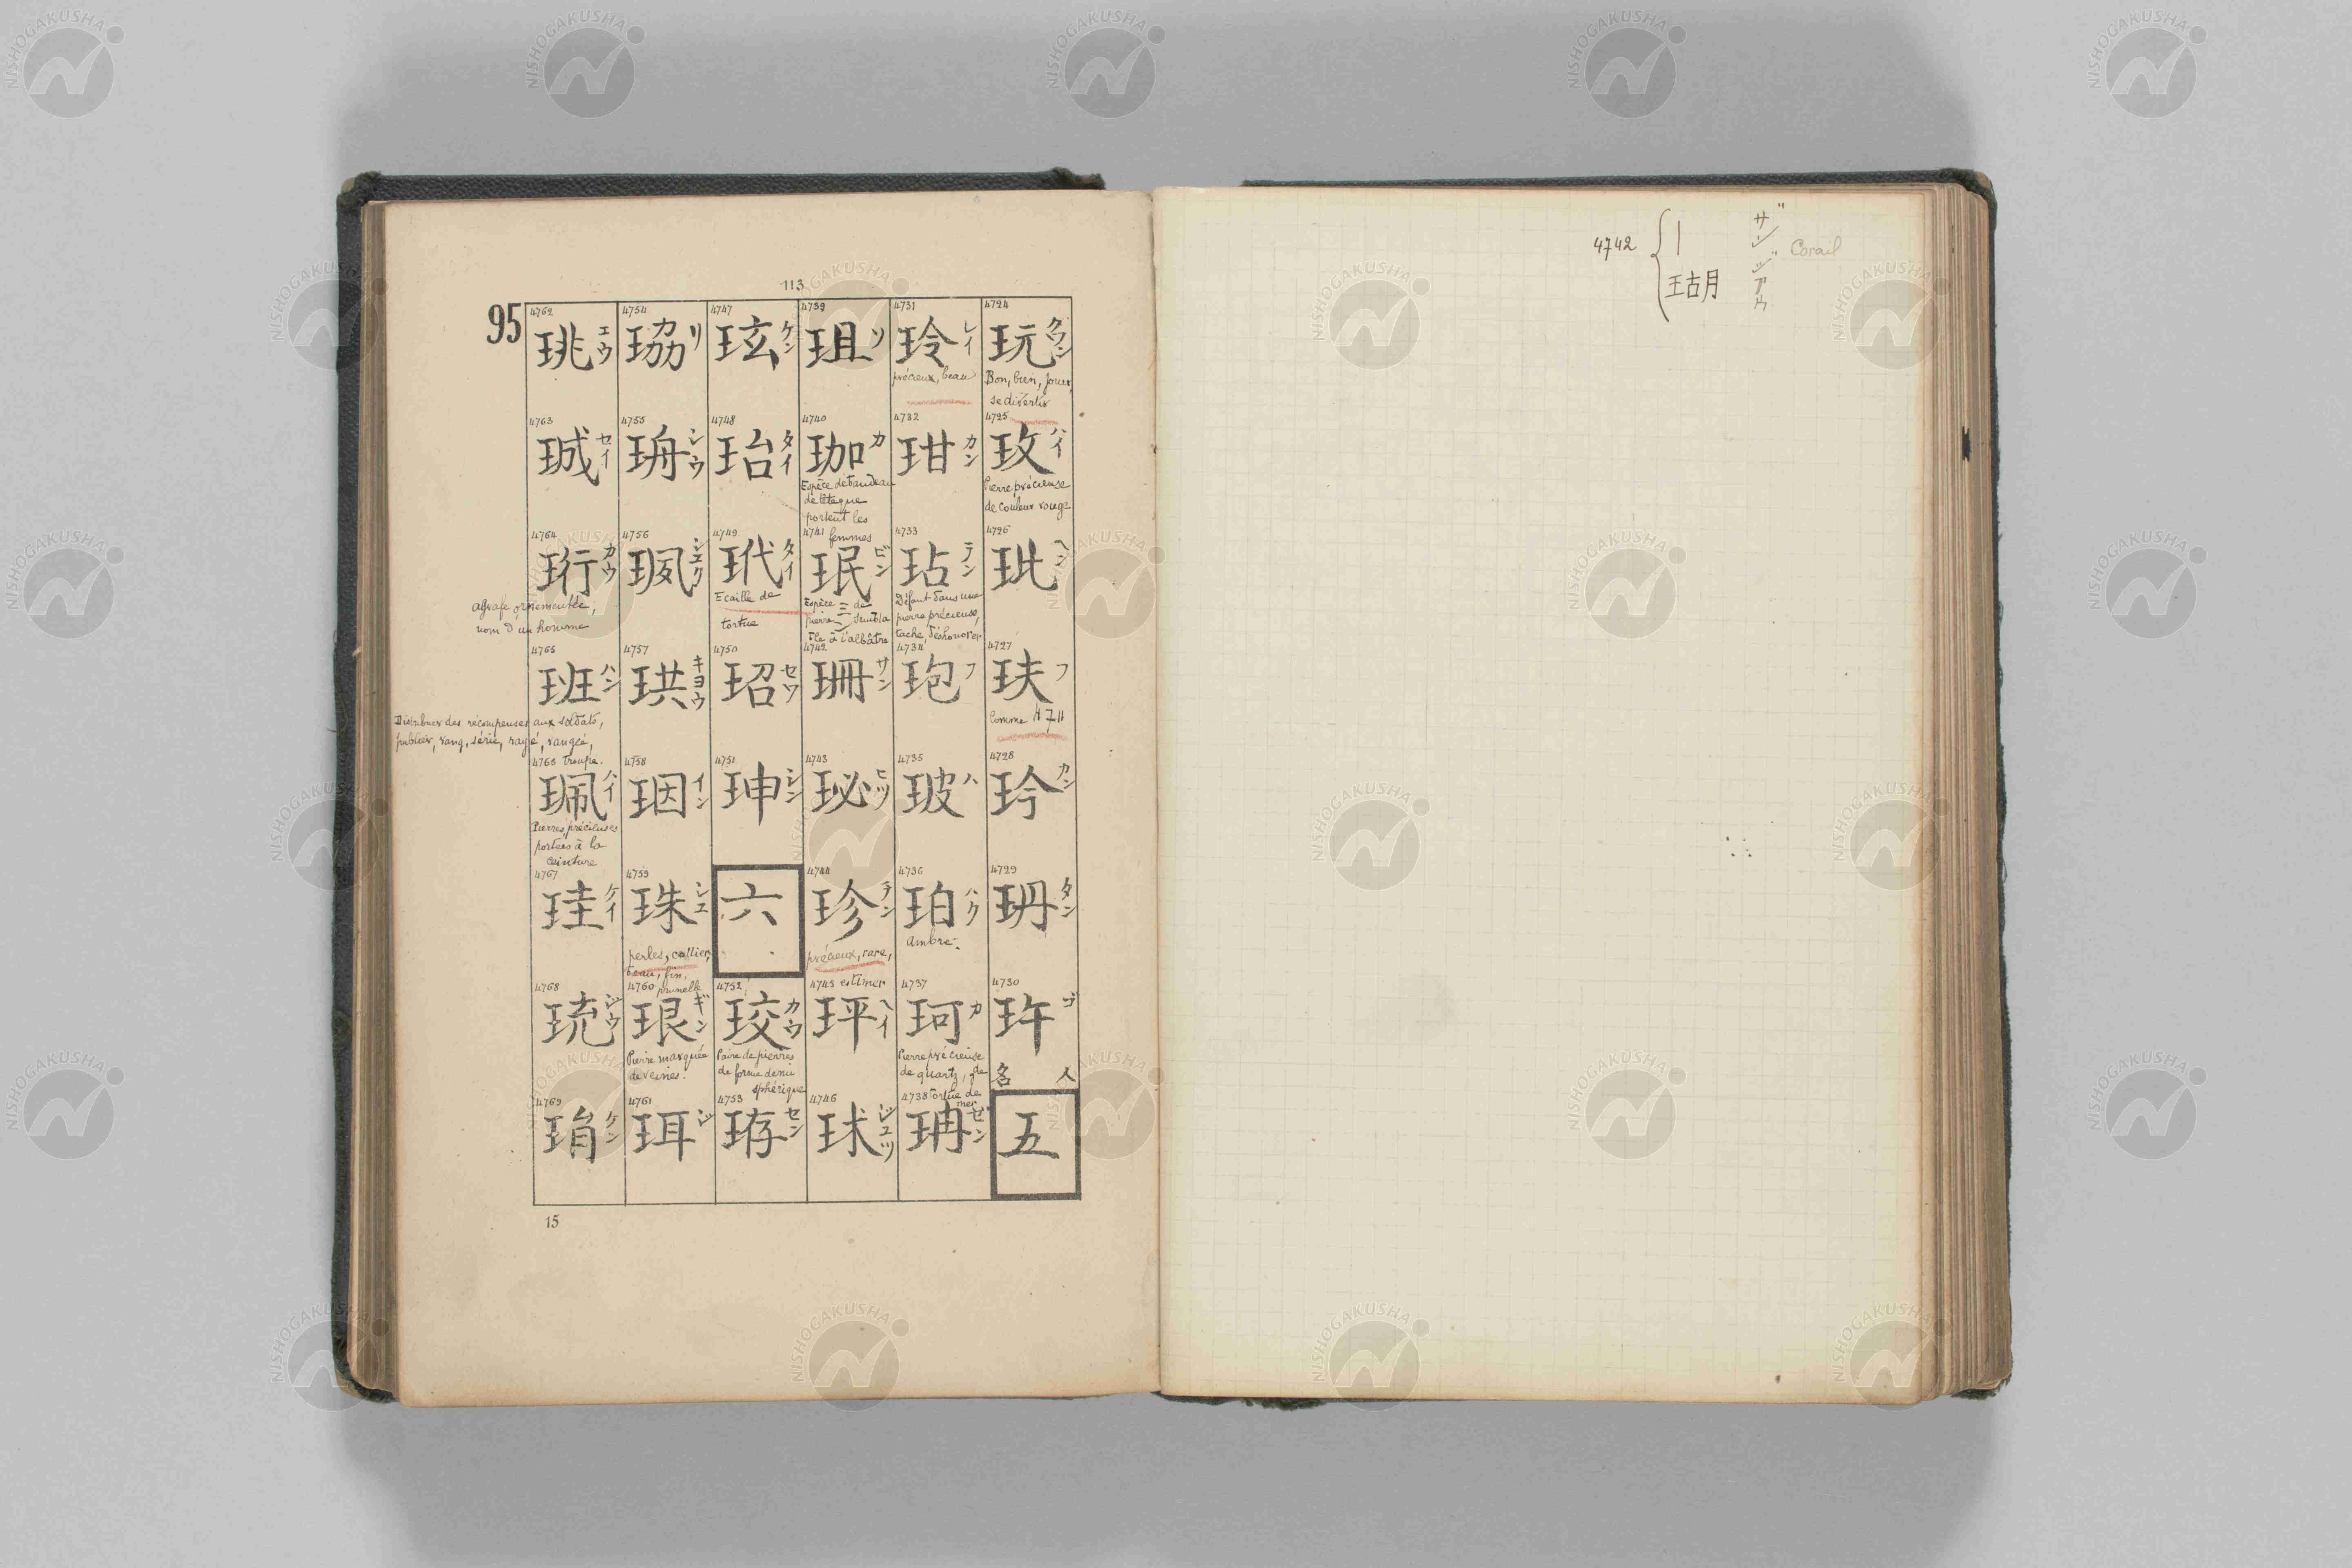 113
95
4724
玩 クワン
Bon, bien, jouer,
se divertir
4725
玫 ハイ
Pierre précieuse
de couleur rouge
4726
玭 ヘン
4727
玞 フ
Comme 4711
4728
玪 カン
4729
玬 タン
4730
玝 ゴ
人名
五
4731
玲 レイ
précieux, beau
4732
玵 カン
4733
玷 テン
Défaut dans une
pierre précieuse,
tache, déshonorer
4734
玸 フ
4735
玻 ハ
4736
珀 ハク
Ambre.
4737
珂 カ
Pierre précieuse
de quartz, gde
tortue de
mer
4738
珃 ゼン
4739
珇 ソ
4740
珈 カ
Espèce de bandeau
de tête que
portent les
femmes
4741
珉 ビン
Espèce de
pierre sembla
ble à l'albâtre
4742
珊 サン
4743
珌 ヒツ
4744
珍 チン
précieux, rare,
estimer
4745
玶 ヘイ
4746
珬 シュツ
4747
玹 ケン
4748
珆 タイ
4749
玳 タイ
Ecaille de
tortue
4750
玿 セウ
4751
珅 シン
六
4752
珓 カウ
Paire de pierres
de forme demi
sphérique
4753
珔 セン
4754
珕 リ
4755
珘 シウ
4756
珟 シユク
4757
珙 キヨウ
4758
珚 イン
4759
珠 シユ
perles, collier,
beau, fin,
prunelle
4760
珢 ギン
Pierre marquée
de veines.
4761
珥 ジ
4762
珧 エウ
4763
珹 セイ
4764
珩 カウ
Agrafe ornementale,
nom d'un homme
4765
班 ハン
Distribuer des récompenses aux soldats,
publier, rang, série, rayé, rangée,
troupe.
4766
珮 ハイ
Pierres précieuses
portées à la
ceinture
4767
珪 ケイ
4768
珫 ジウ
4769
琄 ケン
15
4742
｜ サン゛
瑚 ゴ
Corail
NISHOGAKUSHA